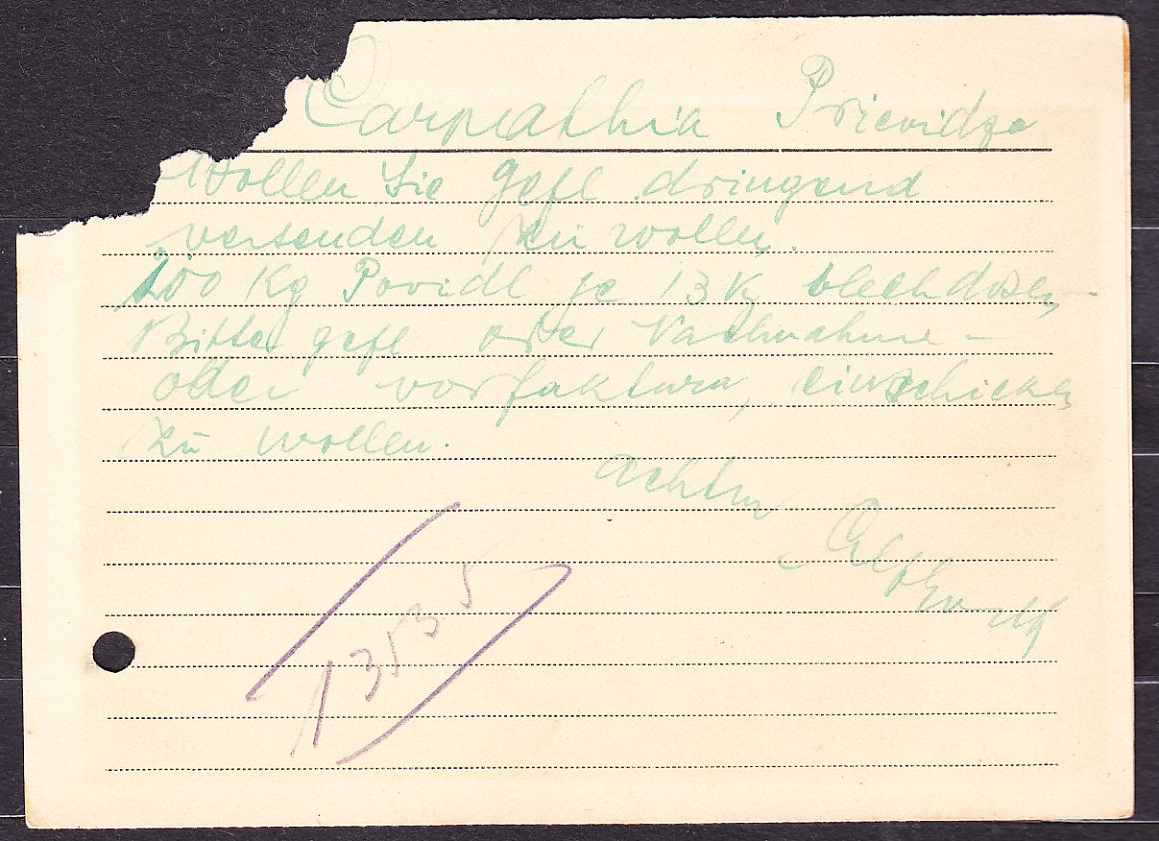 Carpathia Prievidza
Wollen Sie gefl dringend
versenden zu wollen.
200 Kg Povidl je 13 K blechdosen
Bitte gefl oder Nachnahme -
oder vorfaktura, einschicken
zu wollen.
achtm
13535